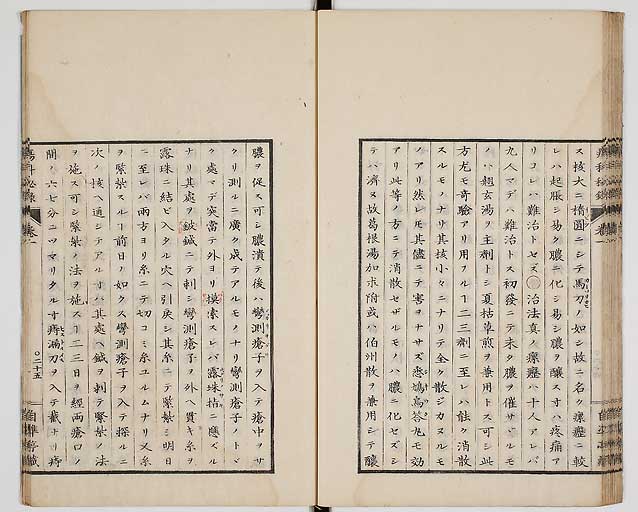 ス核大ニ橢圓ニシテ馬刀ノ如シ故ニ名ク瘰癧ニ較
レハ起脹シ易ク膿ニ化シ易シ膿ヲ釀スヿハ疼痛ア
リコレハ難治トセズ 治法真ノ瘰癧ハ十人アレバ
九人マデハ難治トス初發ニテ未タ膿ヲ催サヾルモ
ノハ玄湯ヲ主劑トシ夏枯草煎ヲ兼用トス可シ此
方尤モ奇驗アリ用フルヿ二三劑ニ至レハ能ク消散
スルモノナリ其核小々ニナリテ全ク散ジカヌルモ
ノアリ然レモ其儘ニテ害ヲナサズ答尤モ効
アリ此等ノ方ニテ消散セザルモノハ膿ニ化セズシ
テハ濟ヌ故葛根湯加朮附或ハ伯州散ヲ兼用シテ釀
膿ヲ促ス可シ膿潰テ後ハ彎測瘡子ヲ入テ瘡中ヲサ
クリ測ルニ廣ク成テアルモノナリ彎測瘡子ノトマ
ク處マデ突當テ外ヨリ摸索スレバ露珠指ニ應スル
ナリ其處ヲ鈹鍼ニテ刺シ彎測瘡子ヲ外ヘ貫キ糸ヲ
露珠ニ結ビ入タル穴ヘ引戻シ其糸ニテ緊紮シ明日
ニ至レバ兩方ヨリ糸ニテ切コミ糸ユルムナリ又糸
ヲ緊紮スルヿ前日ノ如クス彎測瘡子ヲ入テ探ルニ
次ノ核ヘ通シテアルヿハ其處ヘ鍼ヲ刺テ緊紮ノ法
ヲ施ス可シ緊紮ノ法ヲ施スヿ二三日ヲ經兩瘡口ノ
間ノ六七分ニツマリタルヿ痔漏刀ヲ入テ截ナリ痔
瘍科秘錄 卷一
〇二十五